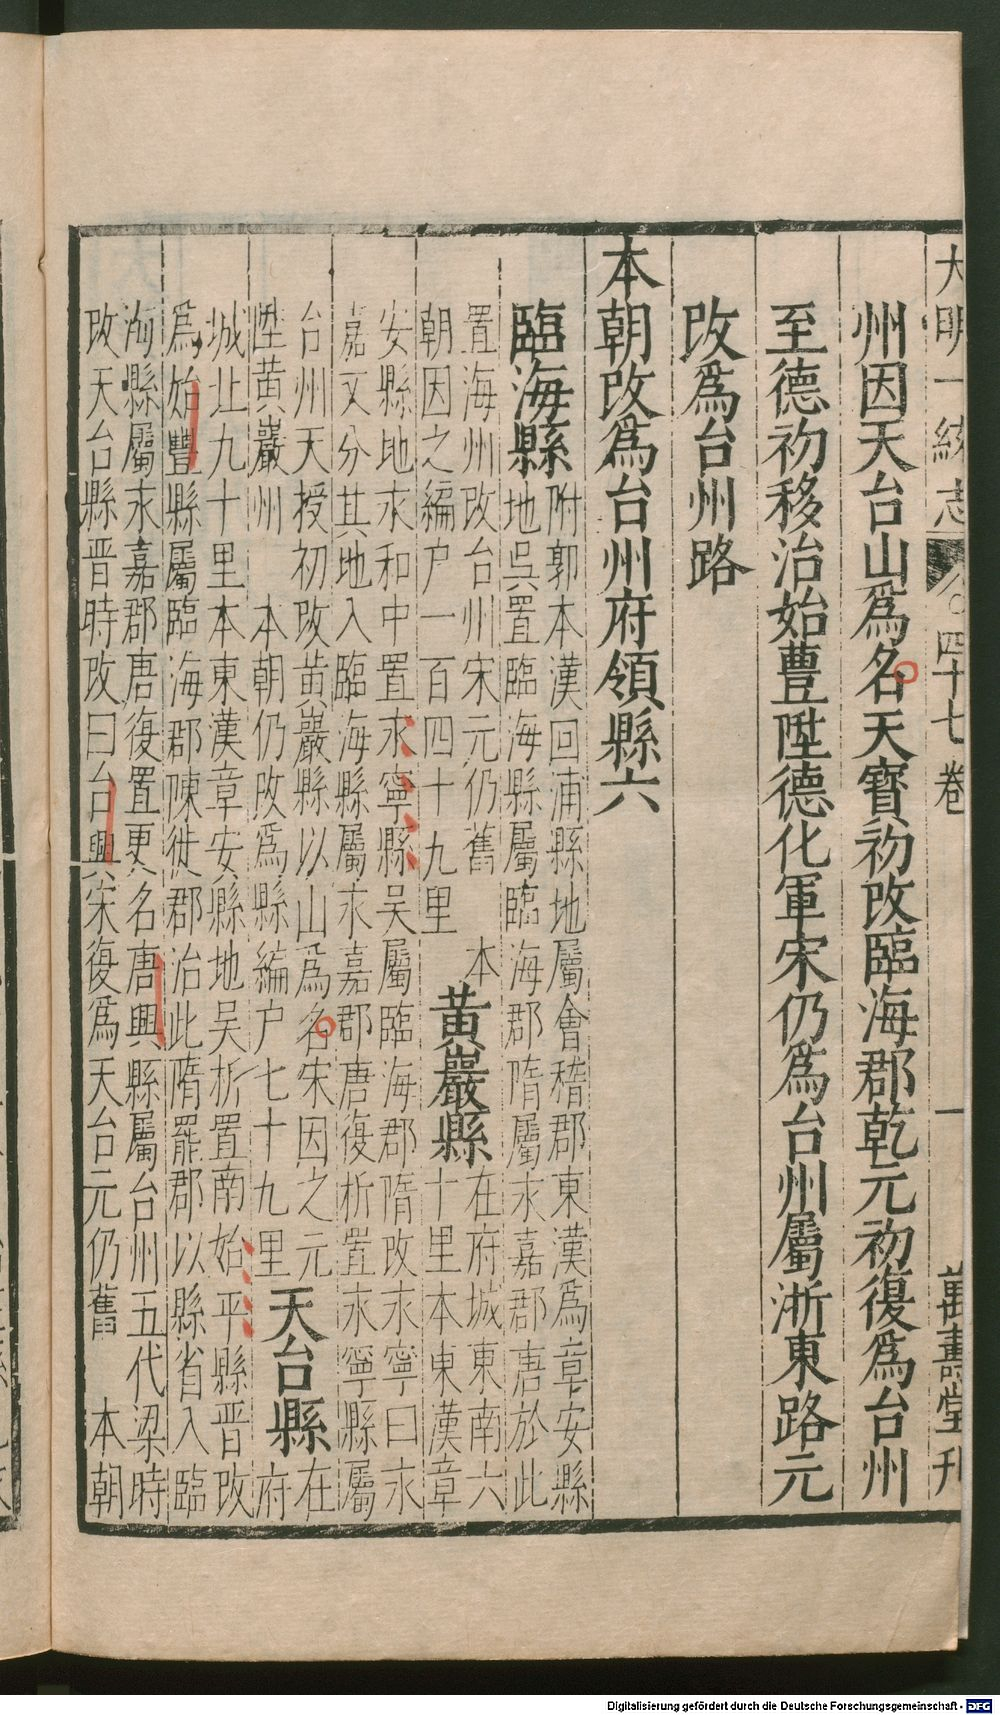 大明一統志 四十七卷 一 萬壽堂刋
州因天台山爲名天寶初改臨海郡乾元初復爲台州
至德初移治始豊陞德化軍宋仍爲台州屬浙東路元
改爲台州路
本朝改爲台州府領縣六
臨海縣
附郭本漢回浦縣地屬會稽郡東漢爲章安縣
地吳置臨海縣屬臨海郡隋屬永嘉郡唐於此
置海州改台州宋元仍舊 本
朝因之編户一百四十九里
黄巖縣
在府城東南六
十里本東漢章
安縣地永和中置永寧縣吳屬臨海郡隋改永寧曰永
嘉又分其地入臨海縣屬永嘉郡唐復析置永寧縣屬
台州天授初改黄巖縣以山爲名宋因之元
陞黄巖州 本朝仍改爲縣編户七十九里
天台縣
在
府
城北九十里本東漢章安縣地吳析置南始平縣晋改
爲始豐縣屬臨海郡陳徙郡治此隋罷郡以縣省入臨
海縣屬永嘉郡唐復置更名唐興縣屬台州五代梁時
改天台縣晋時改曰台興宋復爲天台元仍舊 本朝
Digitalisierung gefördert durch die Deutsche Forschungsgemeinschaft - DFG